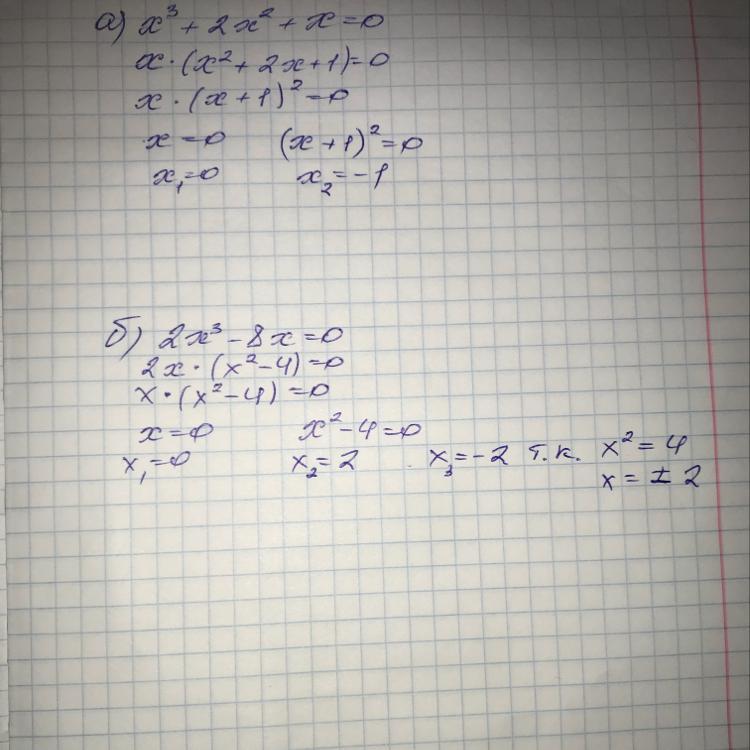 а) x³ + 2x² + x = 0
x · (x² + 2x + 1) = 0
x · (x + 1)² = 0
x = 0 (x + 1)² = 0
x₁ = 0 x₂ = -1
б) 2x³ - 8x = 0
2x · (x² - 4) = 0
x · (x² - 4) = 0
x = 0 x² - 4 = 0
x₁ = 0 x₂ = 2 x₃ = -2 т.к. x² = 4
x = ± 2